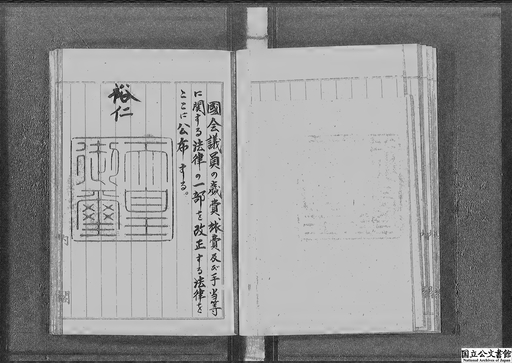 國会議員の歳費、旅費及び手当等
に関する法律の一部を改正する法律を
ここに公布する。
裕仁
天皇
御璽
内閣
国立公文書館
National Archives of Japan